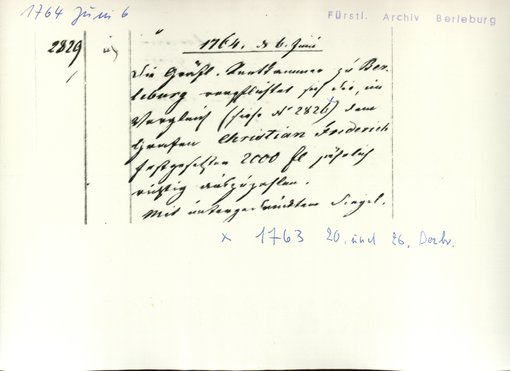 1764 Juni 6
Fürstl. Archiv Berleburg
2829
1764. d. 6. Juni
Die Gräfl. Rentkammer zu Ber-
leburg verpflichtet sich die, im
Vergleich (siehe No 2826) dem
Grafen Christian Friederich
festgesetzten 2000 fl jährlich
richtig auszuzahlen.
Mit untergedrücktem Siegel.
x 1763 20. und 26. Dezbr.